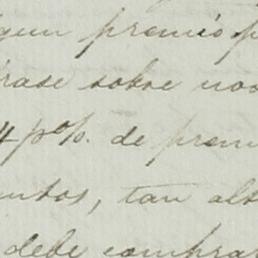 gun premio p
rase sobre nos
4 p%. de prem
untos, tan alt
debe comprar